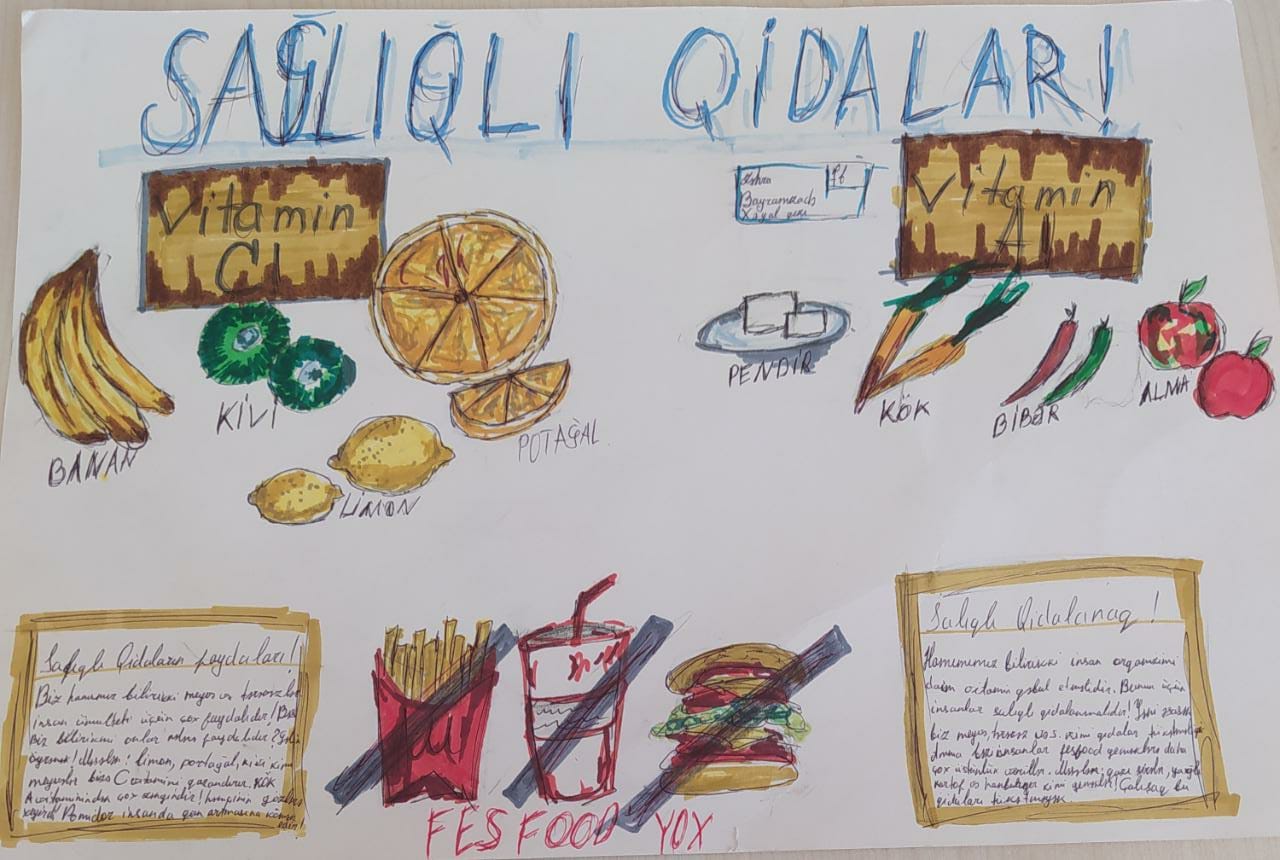 SAĞLIQLI QİDALARI
Vitamin
C!
Bayramzadə
Xəyal qızı
Vitamin
A!
BANAN
KİVİ
LİMON
POTAĞAL
PENDİR
KÖK
BİBƏR
ALMA
Sağlıqlı Qidaların faydaları!
Biz hamımız bilirikki meyvə və tərəvəzlər
insan üçün çox faydalıdır!
Biz bilirikmi onlar faydalıdır? Gəlin
öyrənək! Məsələn: limon, portağal, kivi kimi
meyvələr bizə C vitamini qazandırır. Kök
A vitamininden çox zəngindir!
Pomidor insanda qan artmasına kömək
edir!
FESFOOD YOX
Salıqlı Qidalanaq!
Hamımımız bilirikki insan orqanizmi
daim vitamin qəbul etməlidir. Bunun üçün
insanlar salıqlı qidalanmalıdır!
biz meyvə, tərəvəz və.s. kimi qidalar
Amma bəzi insanlar fesfood yeməklərə daha
çox üstünlük verirlər. Məsələn:
kartof və hamburger kimi yeməkləri! Çalışaq bu
qidaları